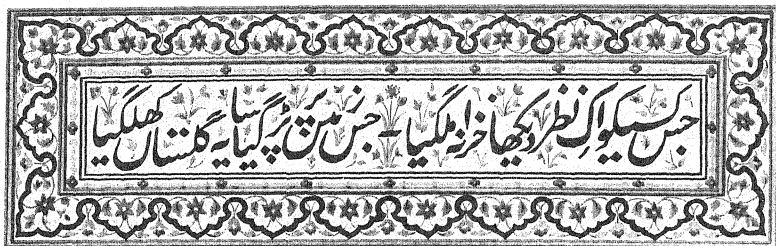 جس کسیکو اک نظر دیکھا خزانہ ملگیا ۔ جس زمیں پر پڑ گیا سایہ گلستاں کھلگیا